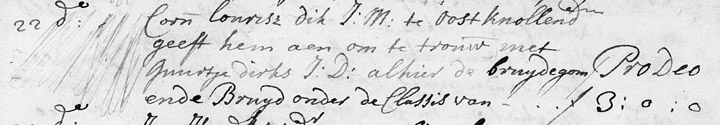 22 de: Corn Lourisz dik J: M: te oostknollendam
geeft hem aen om te trouw met
Guurtje dirks J: D: alhier de bruydegom Pro Deo
ende Bruyd onder de Classis van - . . f 3: 0: 0
de